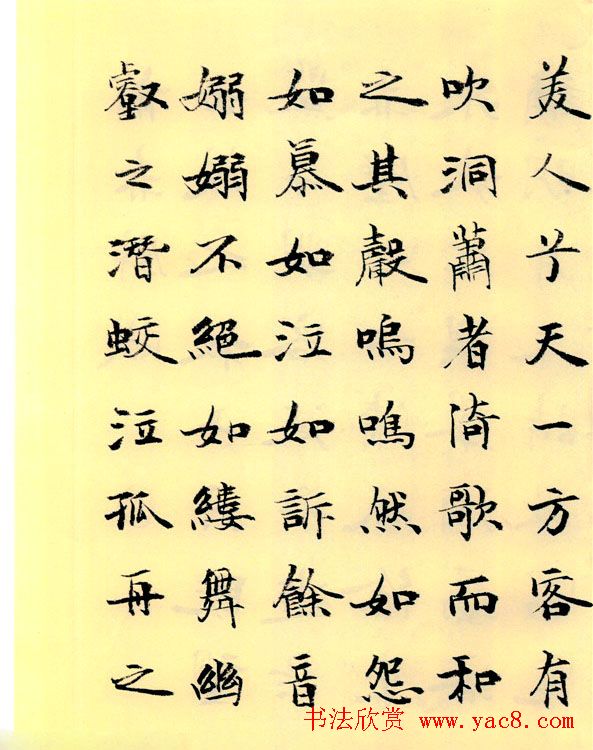 美人兮天一方客有
吹洞蕭者倚歌而和
之其聲嗚嗚然如怨
如慕如泣如訴餘音
嫋嫋不絕如縷舞幽
叡之潜蛟泣孤舟之
书法欣赏 www.yac8.com